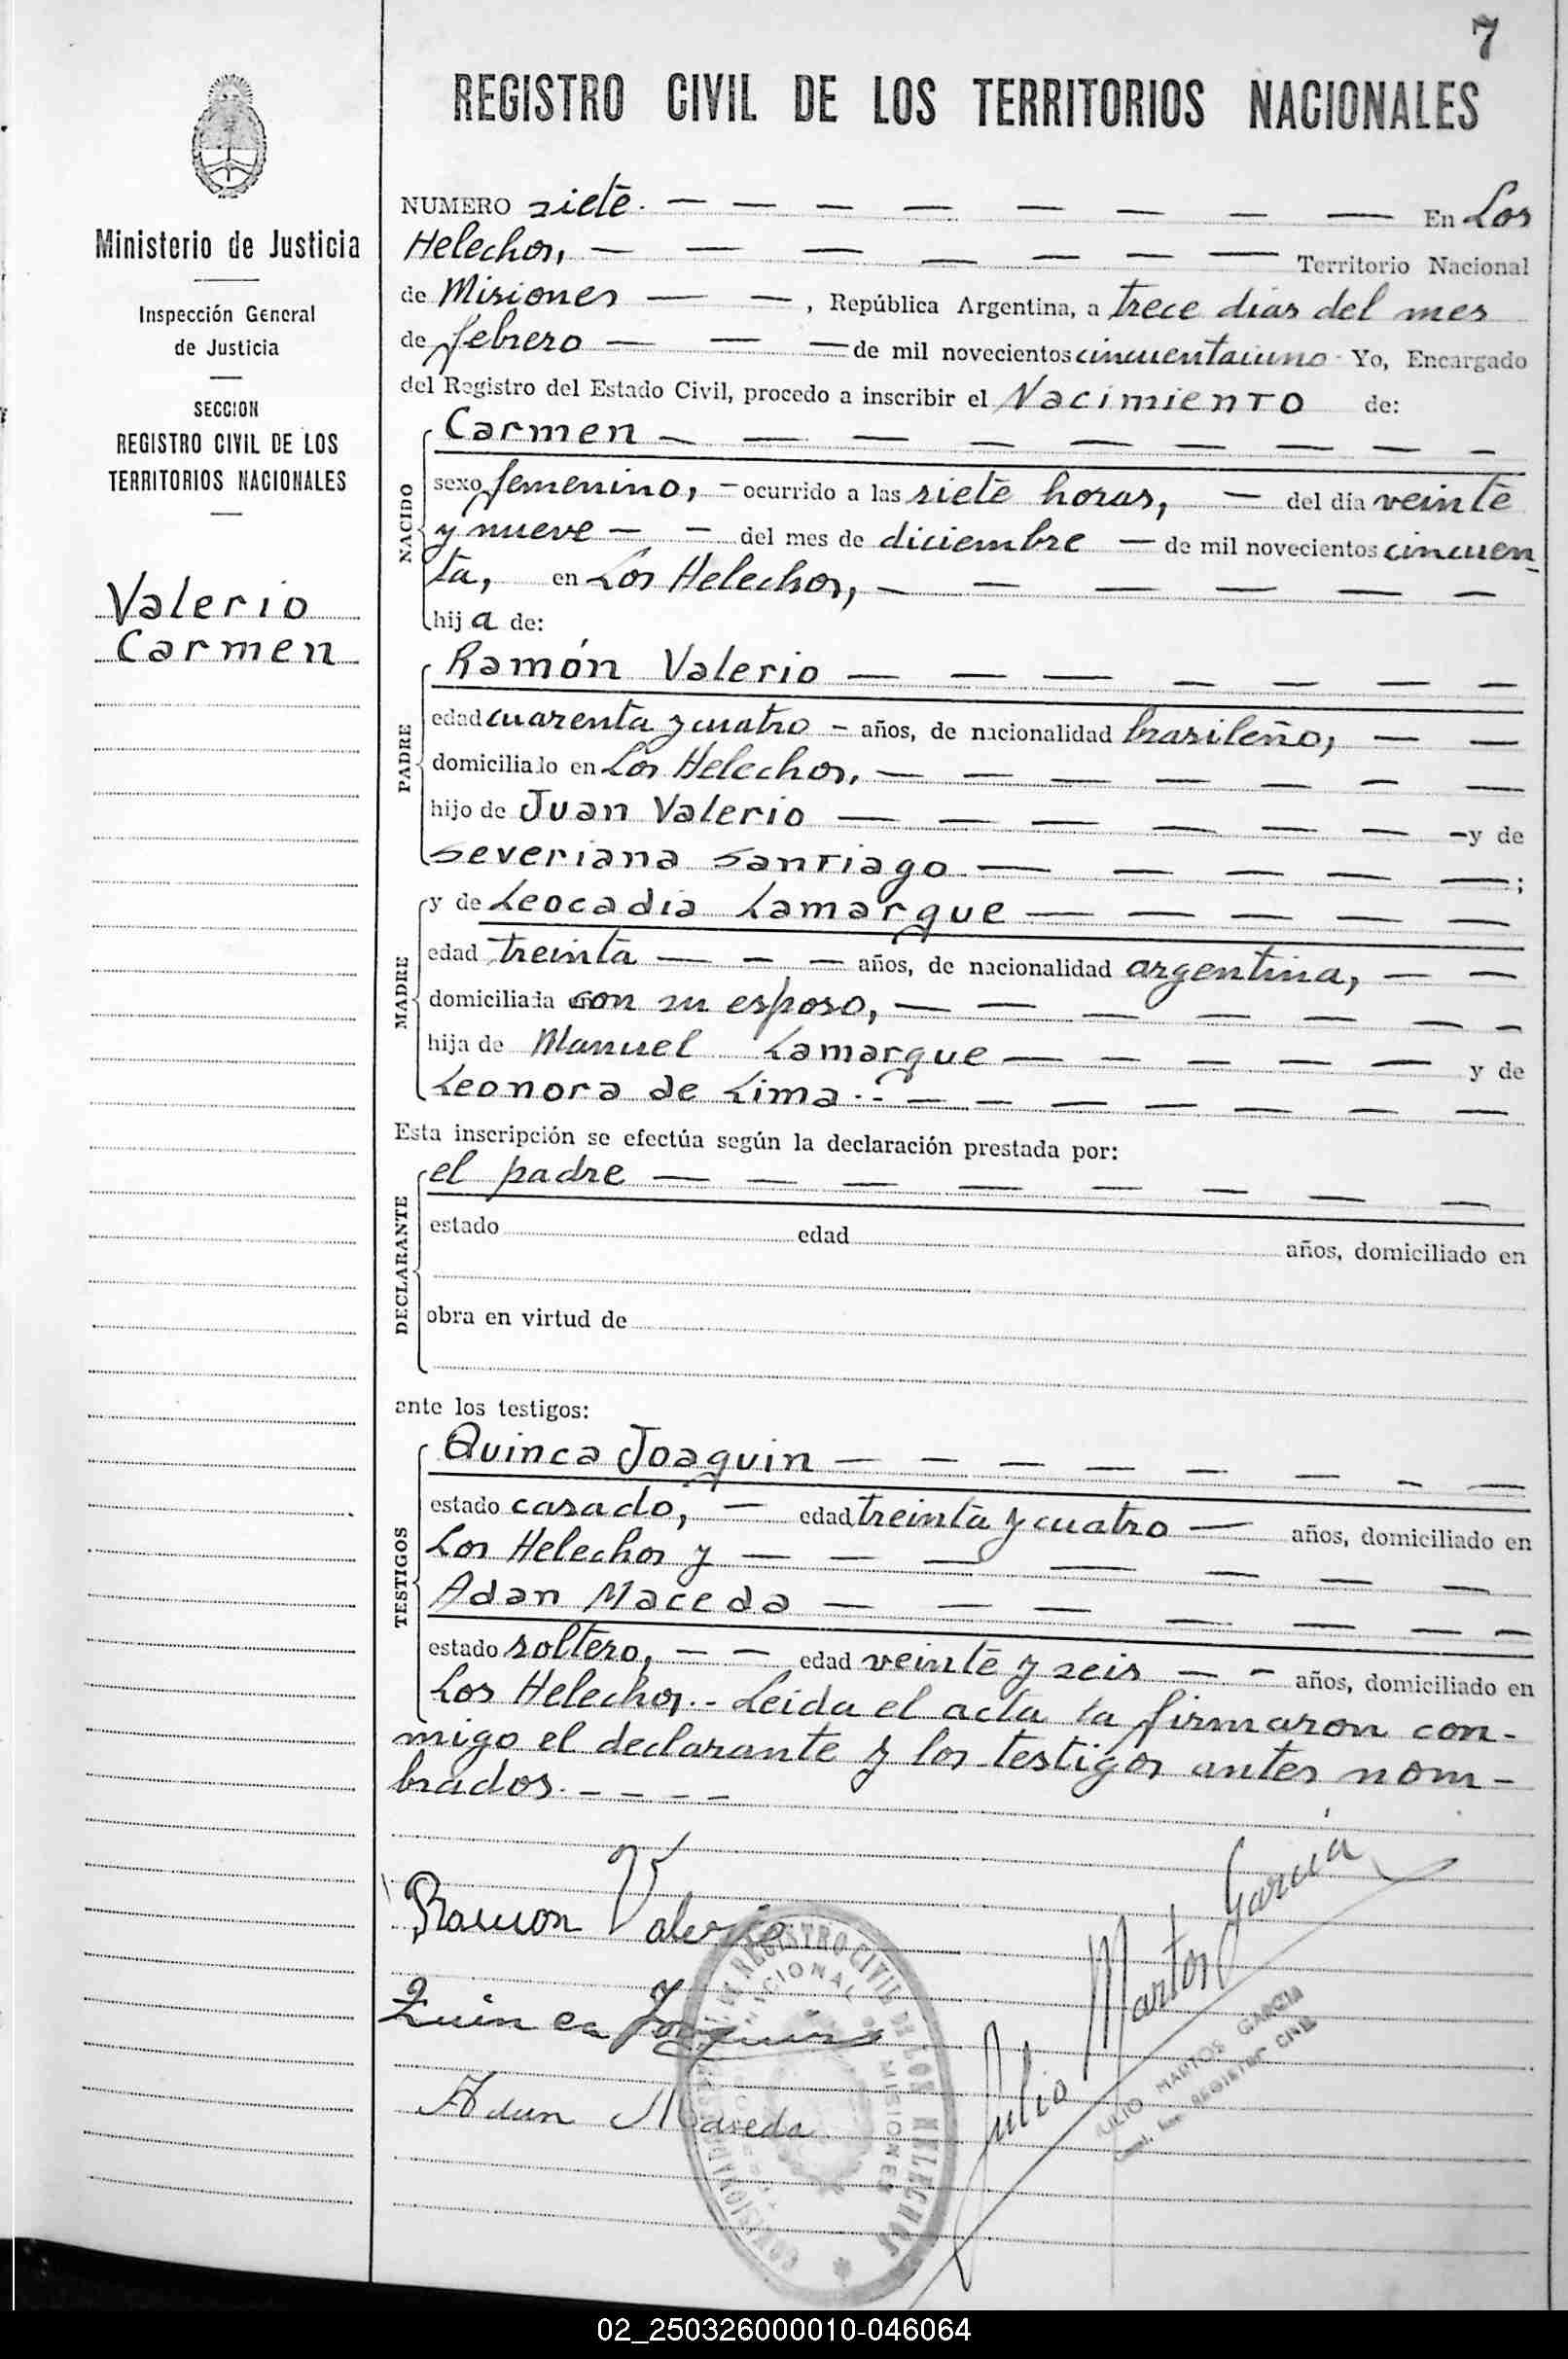 7
REGISTRO CIVIL DE LOS TERRITORIOS NACIONALES
Ministerio de Justicia
Inspección General
de Justicia
SECCION
REGISTRO CIVIL DE LOS
TERRITORIOS NACIONALES
Valerio
Carmen
NUMERO siete. — — — — — — — — En Los
Helechos, — — — — — — — Territorio Nacional
de Misiones — — , República Argentina, a trece días del mes
de febrero — — — de mil novecientos cincuentaiuno Yo, Encargado
del Registro del Estado Civil, procedo a inscribir el Nacimiento de:
NACIDO
Carmen — — — — — — — — —
sexo femenino, — ocurrido a las siete horas, — del día veinte
y nueve — — del mes de diciembre — de mil novecientos cincuen-
ta, en Los Helechos, — — — — — —
hija de:
PADRE
Ramón Valerio — — — — — — —
edad cuarenta y cuatro — años, de nacionalidad brasileño, — —
domiciliado en Los Helechos, — — — — — — —
hijo de Juan Valerio — — — — — — — y de
Severiana Santiago — — — — — ;
MADRE
y de Leocadia Lamarque — — — — —
edad treinta — — — años, de nacionalidad argentina, — —
domiciliada con su esposo, — — — — — — — —
hija de Manuel Lamarque — — — — — y de
Leonora de Lima.- — — — — — — —
Esta inscripción se efectúa según la declaración prestada por:
DECLARANTE
el padre — — — — — — — —
estado edad años, domiciliado en
obra en virtud de
ante los testigos:
TESTIGOS
Quinca Joaquin — — — — — — — —
estado casado, — edad treinta y cuatro — años, domiciliado en
Los Helechos y — — — — — — —
Adan Maceda — — — — — — —
estado soltero, — — edad veinte y seis — — años, domiciliado en
Los Helechos.- Leida el acta la firmaron con-
migo el declarante y los testigos antes nom-
brados. — — — —
Ramon Valerio
Quinca Joaquin
Adan Maceda
Julio Martos Garcia
JULIO MARTOS GARCIA
REGISTRO CIVIL
REGISTRO CIVIL DE LOS HELECHOS
NACIONAL
MISIONES
02_250326000010-046064